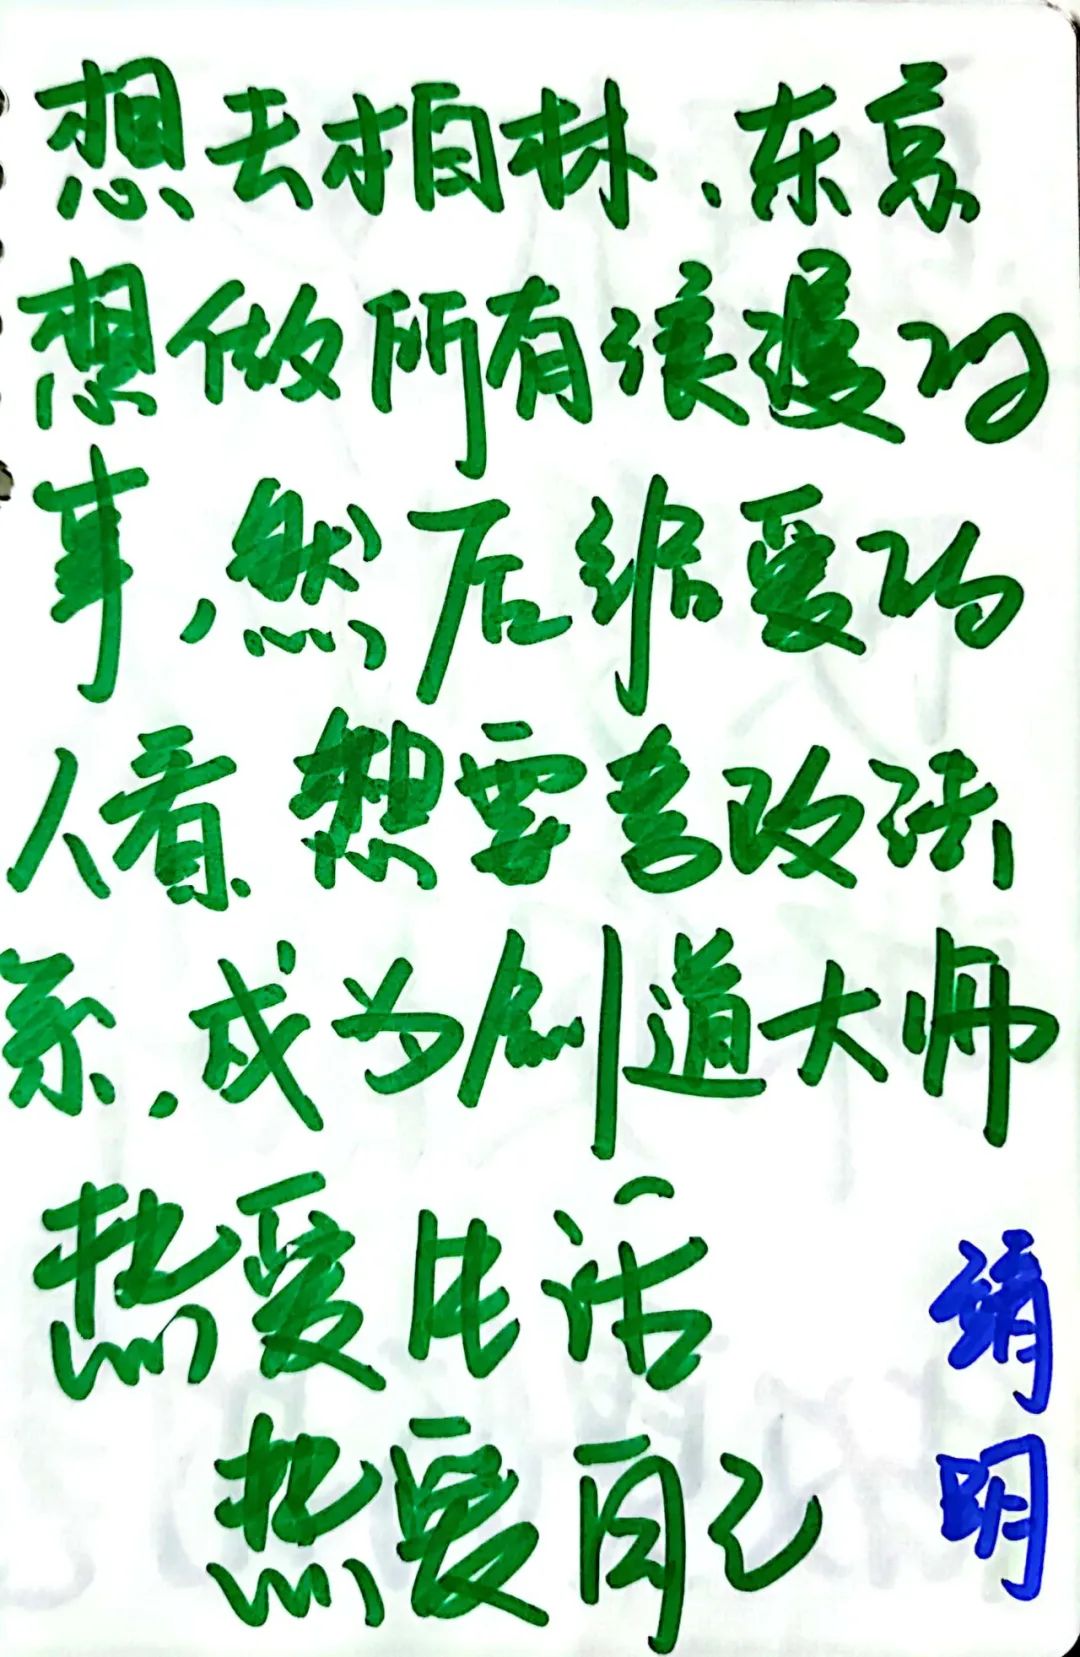 想去柏林、东京
想做所有浪漫的
事,然后给爱的
人看.想要考政法
系,成为剑道大师
热爱生活
热爱自己
靖
明